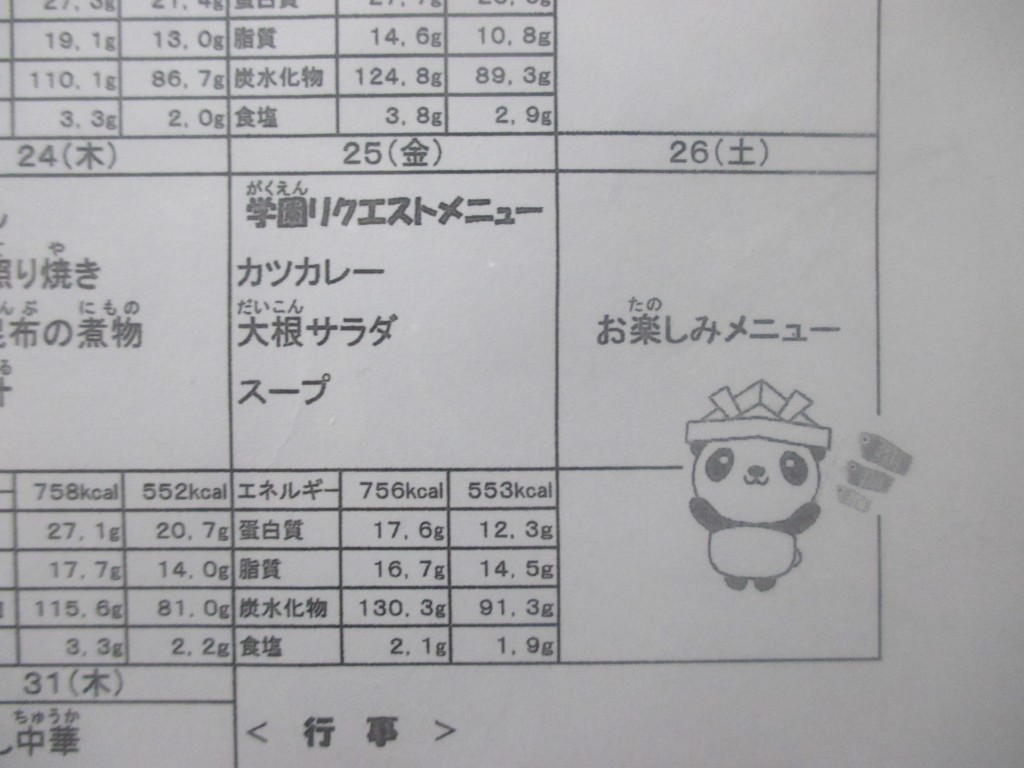 19.1g 13.0g 脂質 14.6g 10.8g
110.1g 86.7g 炭水化物 124.8g 89.3g
3.3g 2.0g 食塩 3.8g 2.9g
24(木) 25(金) 26(土)
がくえん
学園リクエストメニュー
や
照り焼き
カツカレー
んぶ にもの
昆布の煮物
だいこん
大根サラダ
たの
お楽しみメニュー
る
汁
スープ
758kcal 552kcal エネルギー 756kcal 553kcal
27.1g 20.7g 蛋白質 17.6g 12.3g
17.7g 14.0g 脂質 16.7g 14.5g
115.6g 81.0g 炭水化物 130.3g 91.3g
3.3g 2.2g 食塩 2.1g 1.9g
31(木)
ちゅうか
し中華
< 行 事 >